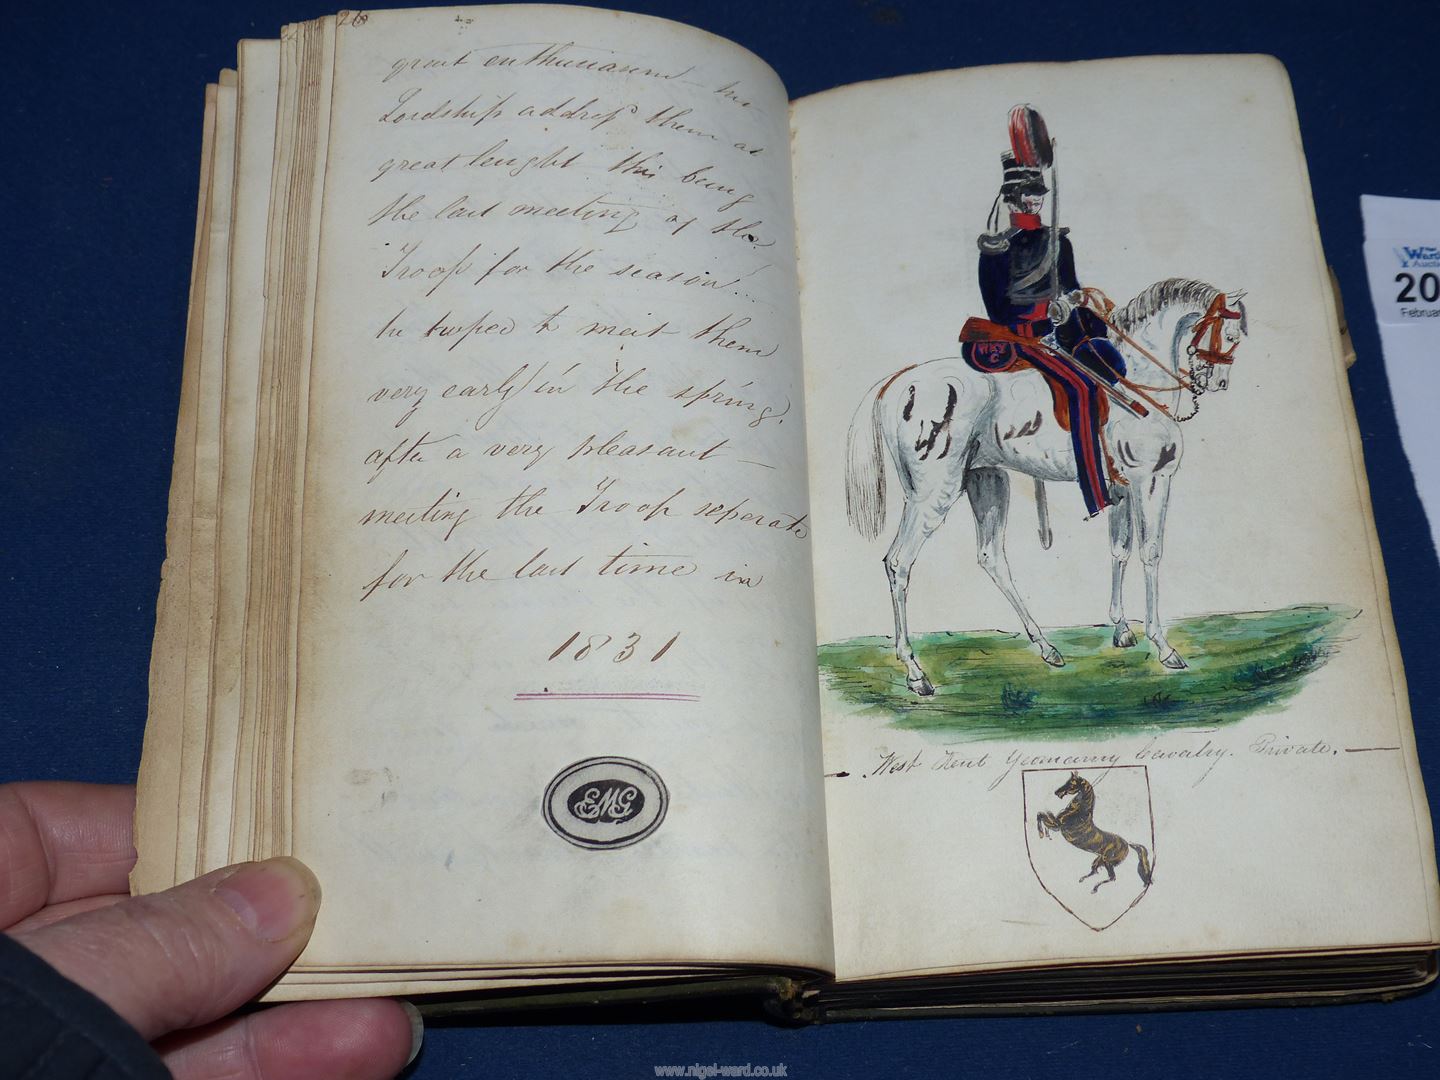 26
great enthusiasm – his
Lordship addreſs them at
great lenght this being
the last meeting of the
Troop for the season..
he hoped to meit them
very early in the spring.
after a very pleasant –
meiting the Troop seperate
for the last time in
1831
EMG
WKY
C
West Kent Yeomanry Cavalry. Private. —
The
Ward
Aucti
20
Februar
www.nigel-ward.co.uk